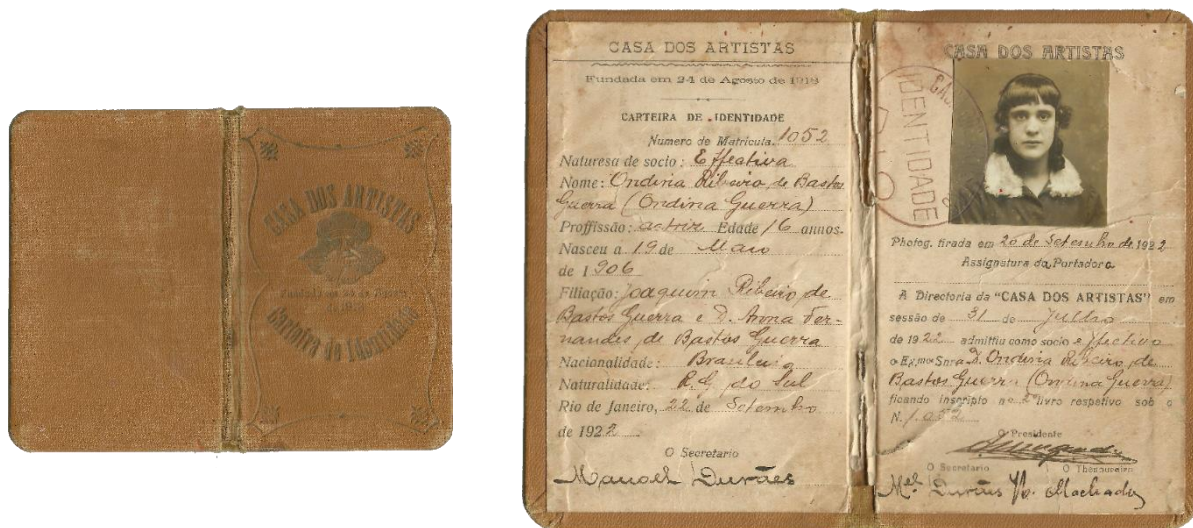 CASA DOS ARTISTAS
Carteira de Identidade
CASA DOS ARTISTAS
Fundada em 24 de Agosto de 1918
CARTEIRA DE IDENTIDADE
Numero de Matricula. 1052
Naturesa de socio: Effectiva
Nome: Ondina Ribeiro de Bastos
Guerra (Ondina Guerra)
Proffissão: actriz Edade 16 annos.
Nasceu a 19 de Maio
de 1906
Filiação: Joaquim Ribeiro de
Bastos Guerra e D. Anna Fer-
nandes de Bastos Guerra
Nacionalidade: Brasileira
Naturalidade: R. G. do Sul
Rio de Janeiro, 22 de Setembro
de 1922
O Secretario
Manoel Durães
CASA DOS ARTISTAS
IDENTIDADE
Photog. tirada em 20 de Setembro de 1922
Assignatura da Portadora
A Directoria da "CASA DOS ARTISTAS" em
sessão de 31 de Julho
de 1922 admittiu como socio effectivo
o Ex.mo Snra D. Ondina Ribeiro de
Bastos Guerra (Ondina Guerra)
ficando inscripto no livro respetivo sob o
N. 1.052
O Presidente
O Secretario O Thesoureiro
Mel Durães Machado